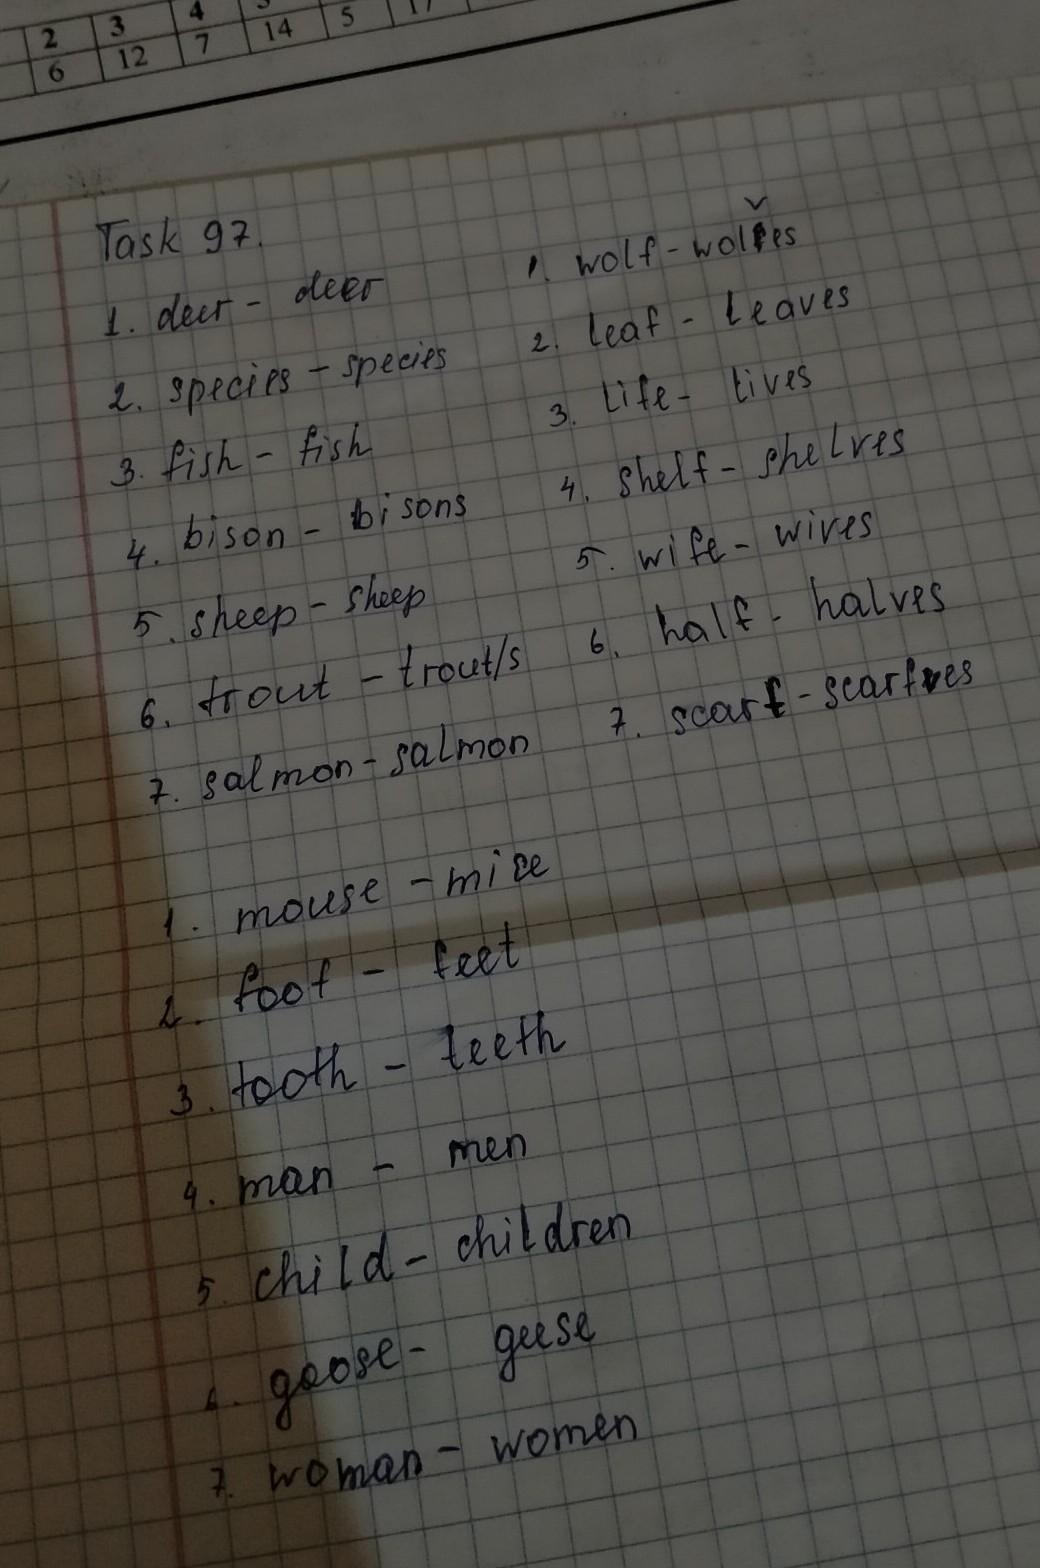 2 3 4 5
6 12 7 14 5 17
Task 97.
1. deer - deer
2. species - species
3. fish - fish
4. bison - bisons
5. sheep - sheep
6. trout - trout/s
7. salmon - salmon
1. wolf - wolves
2. leaf - leaves
3. life - lives
4. shelf - shelves
5. wife - wives
6. half - halves
7. scarf - scarfves
1. mouse - mice
2. foot - feet
3. tooth - teeth
4. man - men
5. child - children
6. goose - geese
7. woman - women